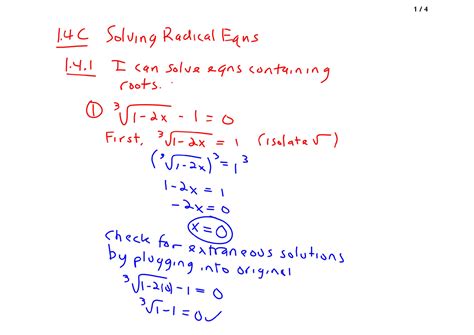 1 / 4
1.4C Solving Radical Eqns
1.4.1 I can solve eqns containing
roots.
① ³√1-2x - 1 = 0
First, ³√1-2x = 1 (isolate √)
(³√1-2x)³ = 1³
1-2x = 1
-2x = 0
x = 0
Check for extraneous solutions
by plugging into original
³√1-2(0) - 1 = 0
³√1 - 1 = 0 ✓